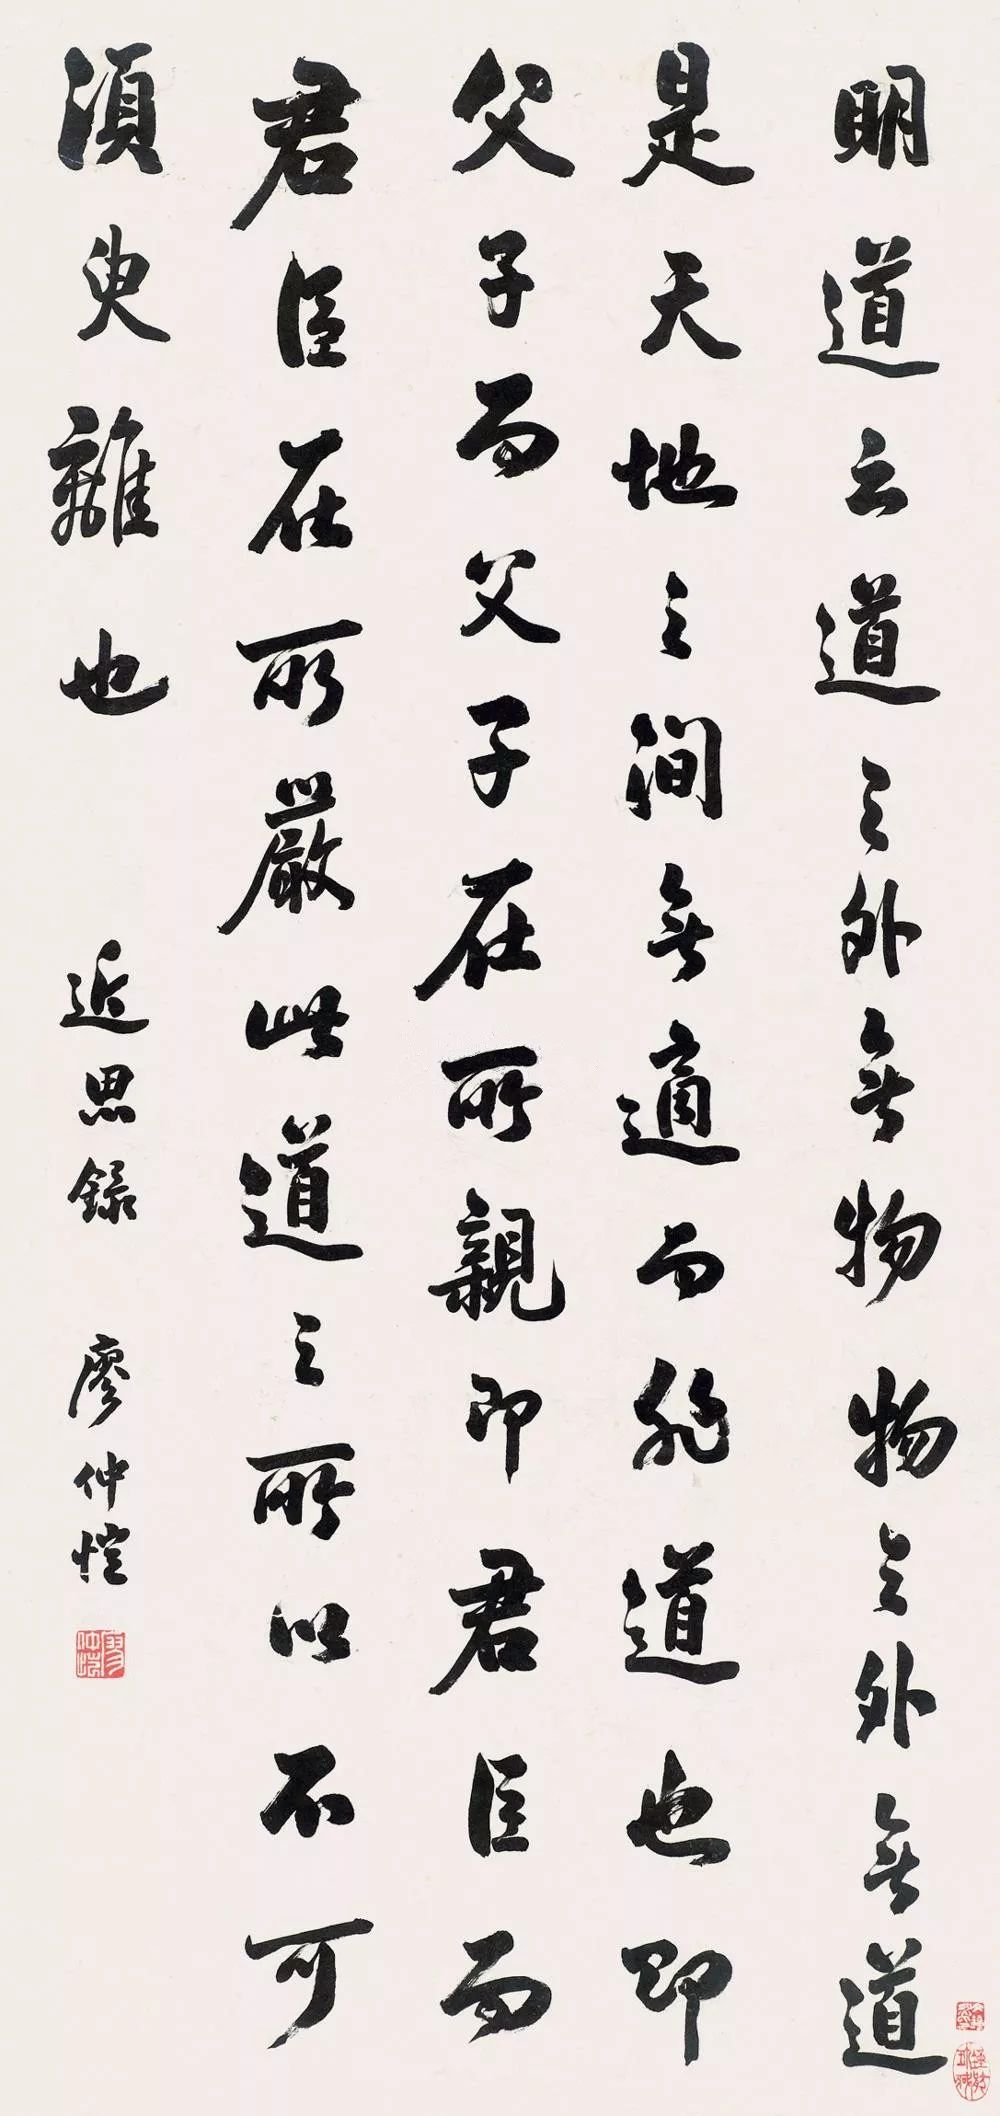 明道云道之外無物物之外無道
是天地之間無適而非道也即
父子而父子在所親即君臣而
君臣在所嚴此道之所以不可
須臾離也
近思錄
廖仲愷
廖仲愷